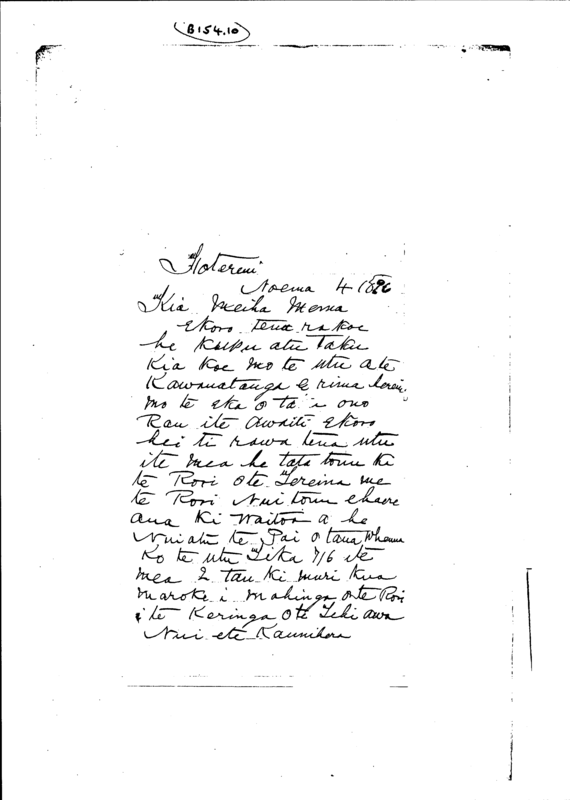 B154.10
Hotereni
Noema 4 1896
Kia Meiha Mema
Ekoro tena ra koe
he kupu atu Taku
Kia koe mo te utu a te
Kawanatanga E rima hereni
mo te eka o ta i ono
Rau ite Awaiti Ekoro
hei ti rawa tena utu
ite mea he tata tonu ki
te Rori ote Tereina me
te Rori Nui tonu e haere
ana Ki Waitoa a he
Nui atu te Pai o taua Whenua
Ko te utu Tika 7/6 ite
mea 2 tau Ki muri Kua
maroke i mahinga o te Rori
i te Keringa Ote awa
Nui ete Kaunihera